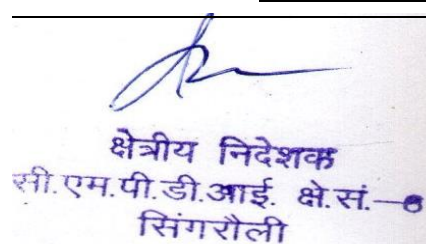 क्षेत्रीय निदेशक
सी.एम.पी.डी.आई. क्षे.सं.-
सिंगरौली